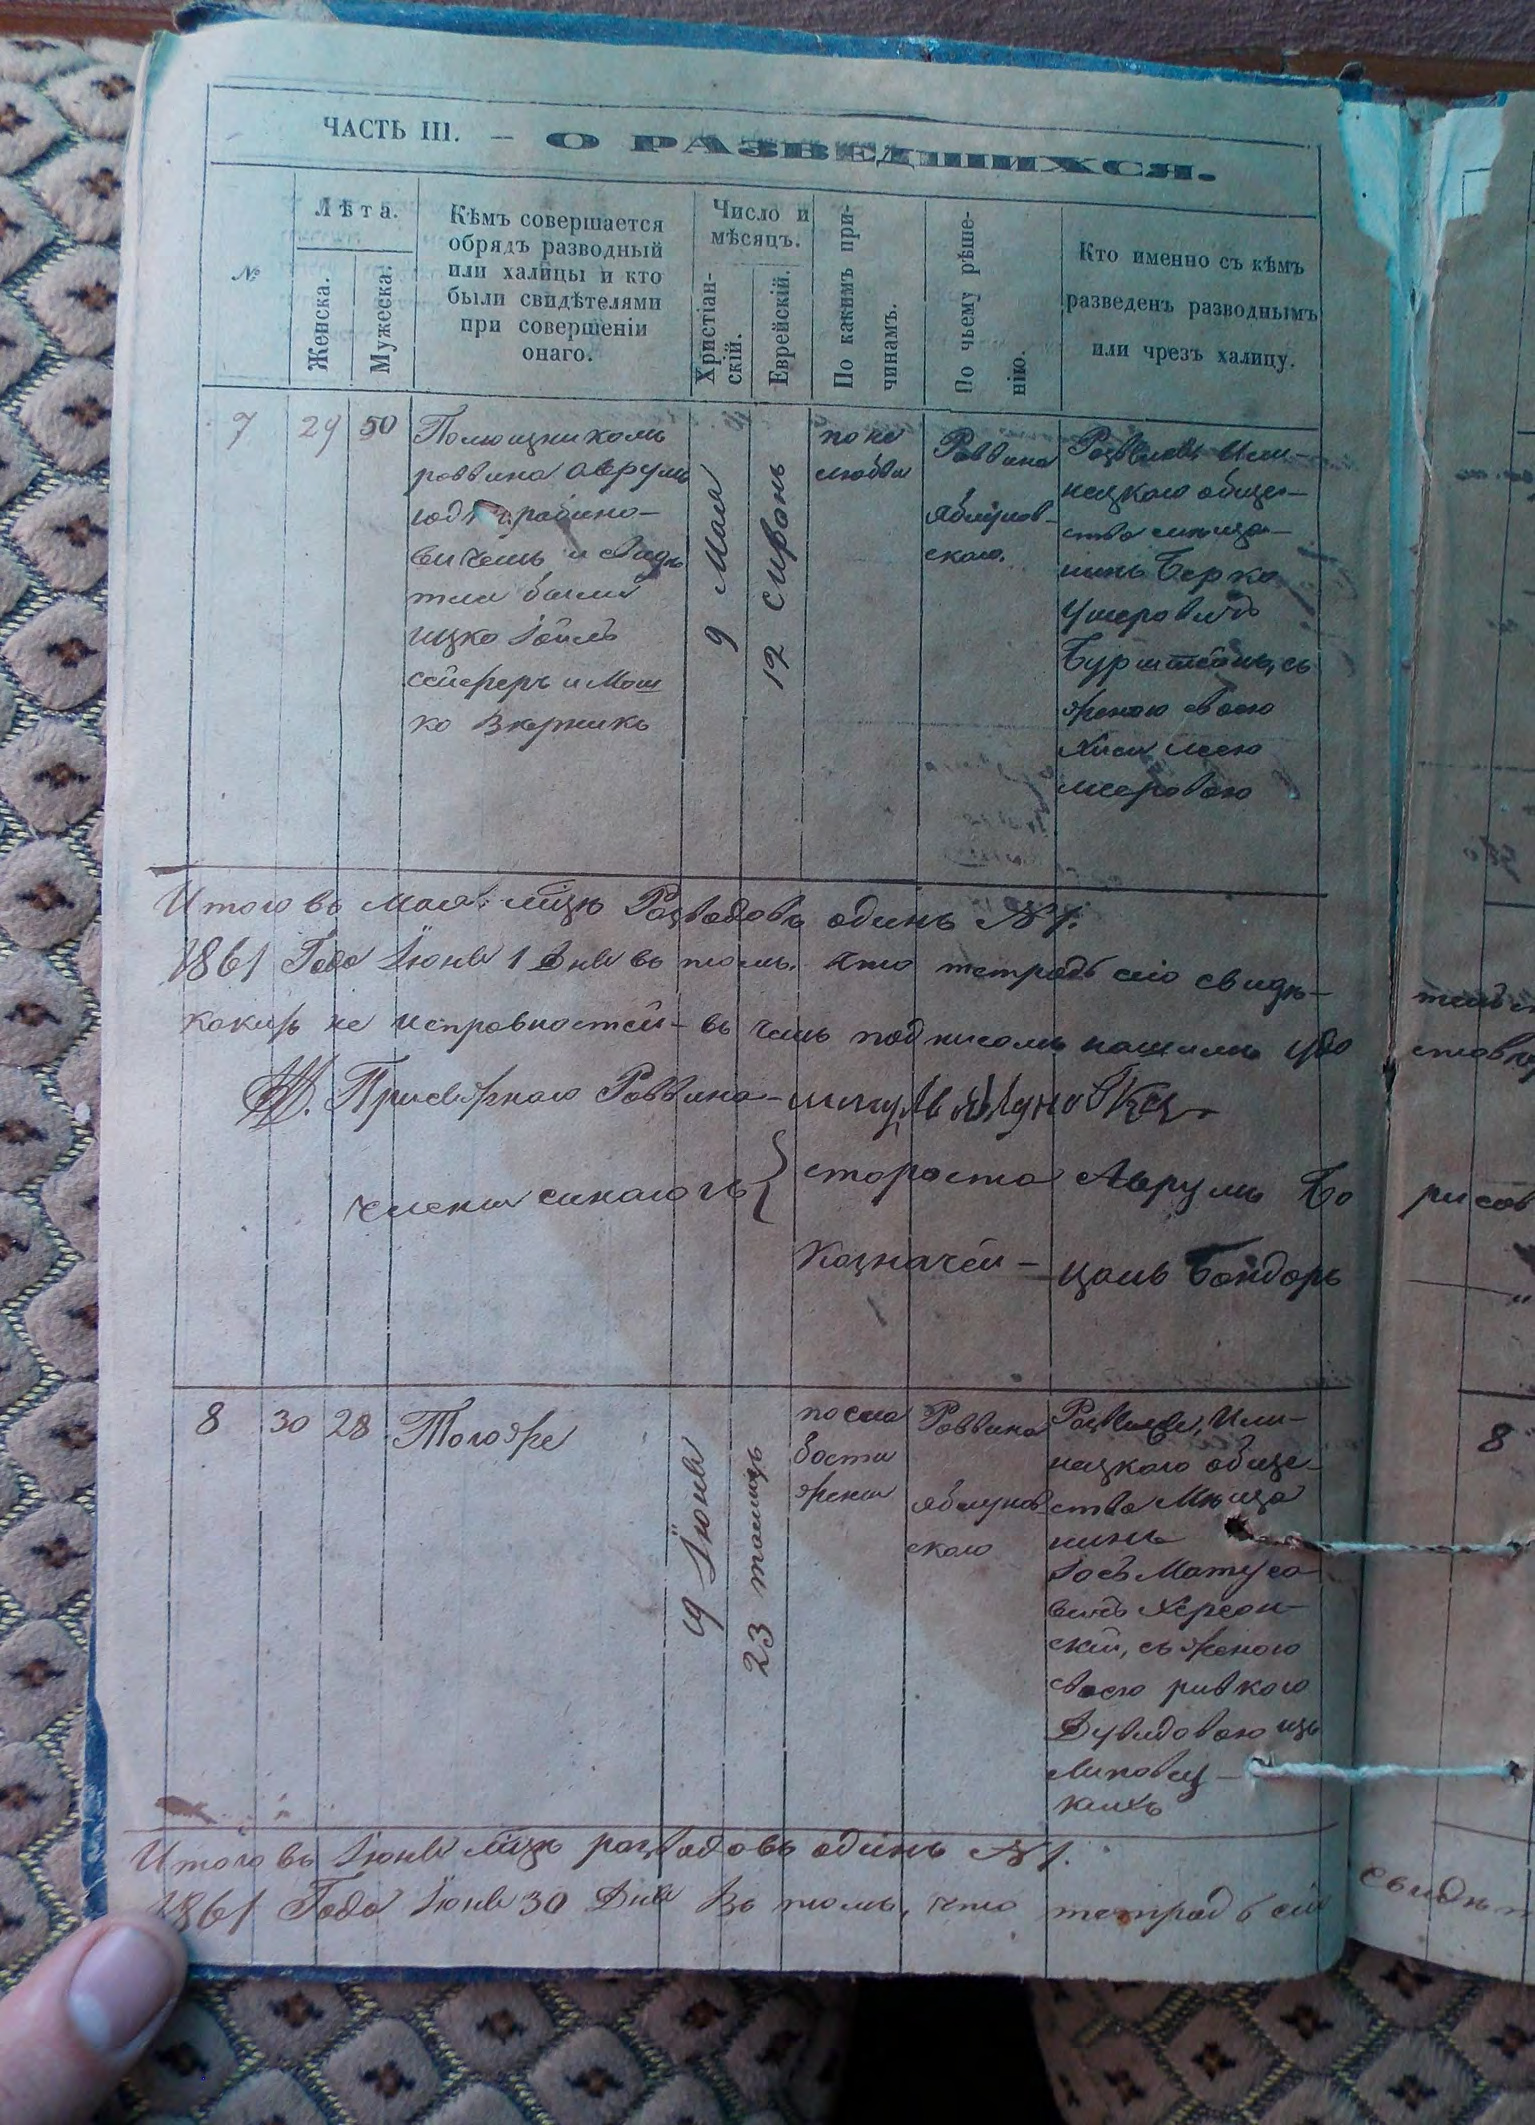 ЧАСТЬ III. — О РАЗВЕДШИХСЯ.
№
Лѣта.
Женска.
Мужеска.
Кѣмъ совершается
обрядъ разводный
или халицы и кто
были свидѣтелями
при совершеніи
онаго.
Число и
мѣсяцъ.
Христіан-
скій.
Еврейскій.
По какимъ при-
чинамъ.
По чьему рѣше-
нію.
Кто именно съ кѣмъ
разведенъ разводнымъ
или чрезъ халицу.
7
29
50
Помощникомъ
раввина Аврумъ
рабино-
вичемъ и свидѣ
тели были
ицко Іойлъ
сейферъ и Мош
ко
9 Мая
12 сивонь
по не
любви
Раввина
яблунов-
скаго.
Развелся Или-
нецкаго обще-
ства мѣща-
нинъ Берко
Ушеровичъ
Бурштейнъ, съ
женою своею
меровою
Итого въ мая м-цѣ Разводовъ одинъ № 1.
1861 Года Іюня 1 Дня въ томъ что тетрадь сію свидѣ-
какихъ не исправностей въ чемъ подписомъ нашимъ удо
Присяжнаго Раввина Шмуль Яблуновскій
члены синагогъ { староста Аврумъ Бо
рисов
Казначей — цаль Бондарь
8
30
28
Тогоже
19 Іюня
23 тамизъ
по сла
бости
жены
Раввина
яблунов
скаго
Развелся, Или-
нецкаго обще-
ства Мѣща
нинъ
Іось Матусо
вичъ Херсон-
скій, съ женою
своею ривкою
Дувидовою изъ
Липовец-
кихъ
8
Итого въ Іюня м-цѣ разводовъ одинъ № 1.
1861 Года Іюня 30 Дня Въ томъ, что тетрадь сія
свидѣт